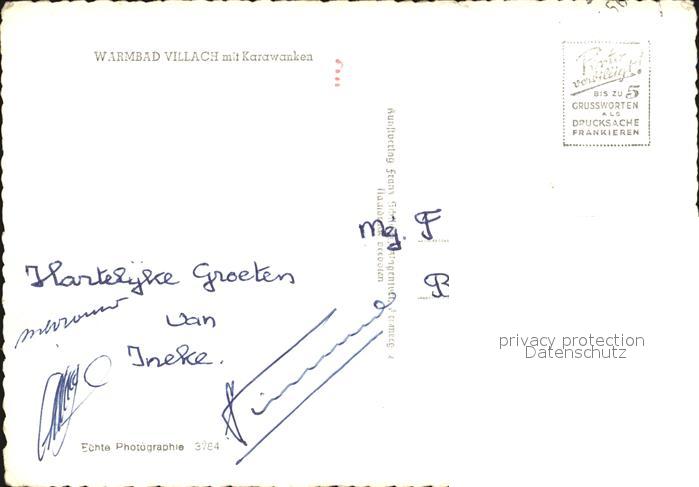 WARMBAD VILLACH mit Karawanken
Porto
verbilligt!
BIS ZU 5
GRUSSWORTEN
ALS
DRUCKSACHE
FRANKIEREN
Mej. F
B
Hartelijke Groeten
van
Ineke.
mevrouw
privacy protection
Datenschutz
Echte Photographie 3784